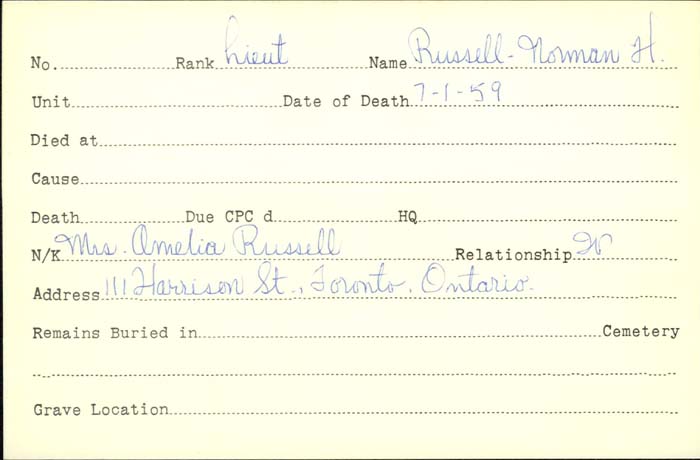 No. Rank Lieut Name Russell - Norman H.
Unit Date of Death 7-1-59
Died at
Cause
Death Due CPC d HQ
N/K Mrs. Amelia Russell Relationship W
Address 111 Harrison St., Toronto, Ontario.
Remains Buried in Cemetery
Grave Location